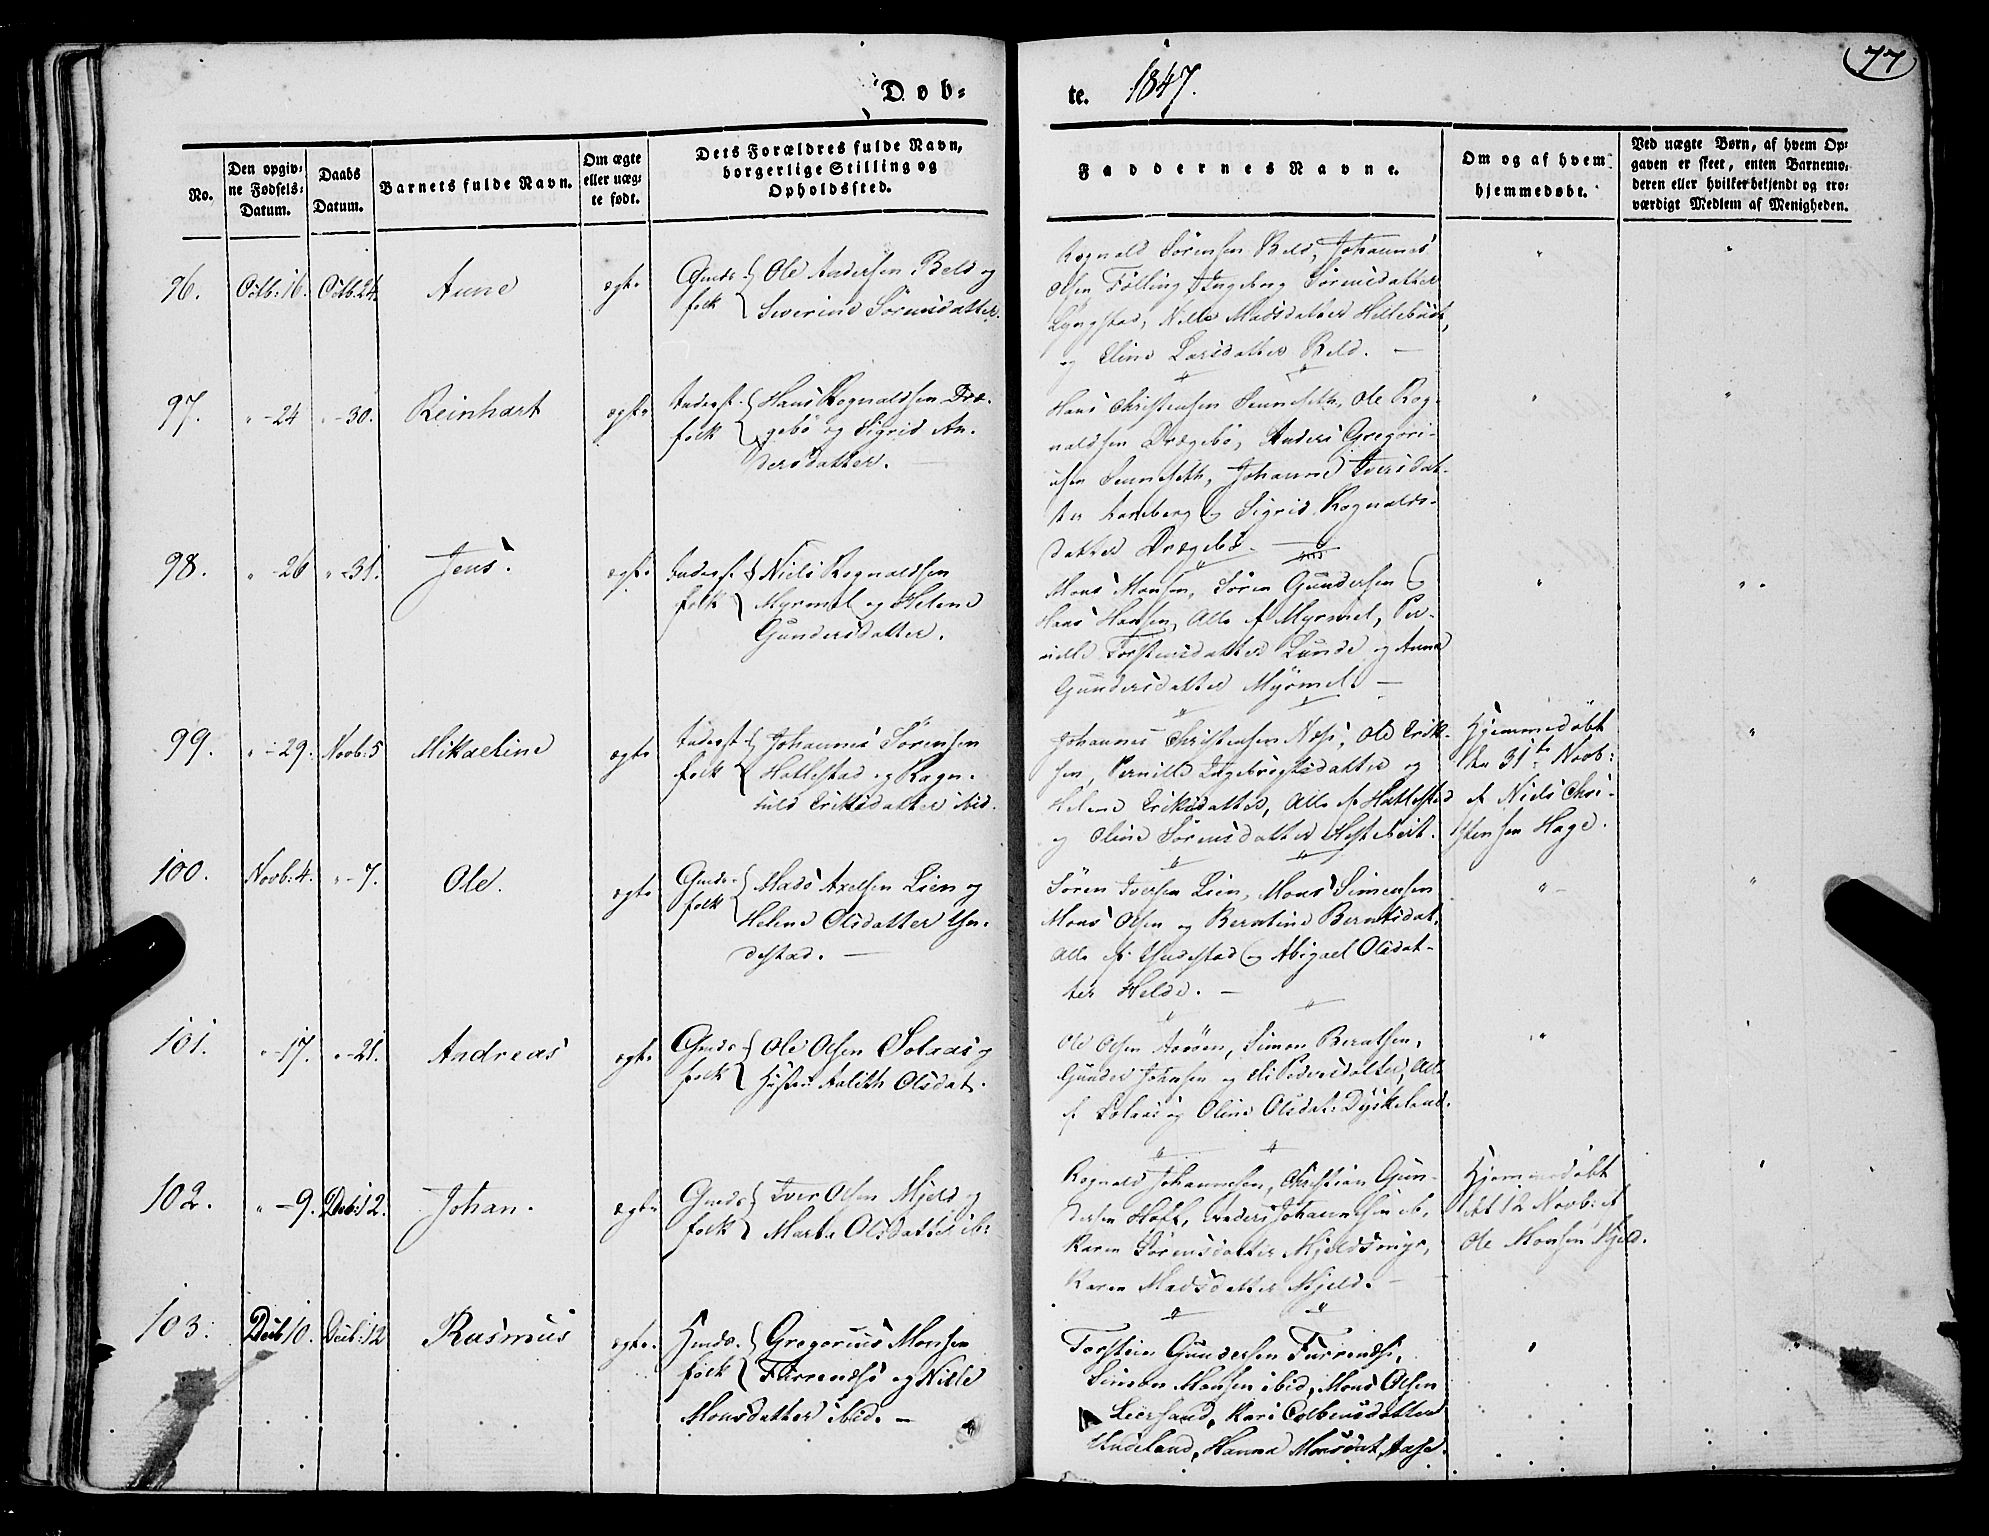 77
Dob-
te. 1847.
No.
Den opgiv-
ne Fødsels-
Datum.
Daabs
Datum.
Barnets fulde Navn.
Om ægte
eller uæg-
te født.
Dets Forældres fulde Navn,
borgerlige Stilling og
Opholdssted.
Faddernes Navne.
Om og af hvem
hjemmedøbt.
Ved uægte Børn, af hvem Op-
gaven er skeet, enten Barnemo-
deren eller hvilket bekjendt og tro-
værdigt Medlem af Menigheden.
96. Octb: 16. Octb. 24 Anne ægte
Gmds-
folk
Ole Andersen Beld og
Severine Sörensdatter.
Rognald Sörensen Beld, Johannes
Olsen Fölling, Ingeborg Sörensdatter
Lyngstad, Nille Madsdatter
og Eline Larsdatter Beld. —
97. " - 24 " - 30. Reinhart ægte
Inderst-
folk
Hans Rognaldsen Dræ-
gebö og Sigrid An-
dersdatter. —
Hans Christensen Ole Rog-
naldsen Drægebö, Anders Gregori-
usen Johanne Iversdat-
ter og Sigrid Rognalds-
datter Drægebö. —
98. " - 26 " - 31. Jens. ægte
Inderst-
folk
Niels Rognaldsen
Myrmel og Helene
Gundersdatter.
Mons Monsen, Sören Gundersen og
Hans Hansen, Alle af Myrmel, Per-
nille Torstensdatter Lunde og Anne
Gundersdatter Myrmel. —
99. " - 29. Novb: 5 Mikaeline ægte
Inderst-
folk
Johannes Sörensen
Hatlestad og Ragn-
hild Eriksdatter ibid.
Johannes Christensen Næs, Ole Erik-
sen, Pernille Ingebrigtsdatter og
Helene Eriksdatter, Alle af Hatlestad
og Oline Sörensdatter
Hjemmedöbt
den 31te Novb:
af Niels Chri-
stensen Hage.
100. Novb: 4. " - 7. Ole. ægte
Gmds-
folk
Mads Axelsen Lien og
Helene Olsdatter Yn-
destad. —
Sören Iversen Lien, Mons Simensen
Mons Olsen og Berntine Berntsdat.
Alle af Yndestad og Abigael Olsdat-
ter Helde. —
101. " - 17. " - 21. Andreas ægte
Gmds-
folk
Ole Olsen Solaas og
Hustru Aalith Olsdat.
Ole Olsen Simon Berntsen,
Gunder Johnsen og Eli Pedersdatter, Alle
af Solaas og Oline Olsdat: Dyskeland.
102. " - 9. Decb: 12. Johan. ægte
Gmds-
folk
Iver Olsen Mjeld og
Marta Olsdatter ib:
Rognald Johannesen, Christian Gun-
dersen Hoff, Anders Johannesen ib,
Karen Sörensdatter Mjeldsmyr,
Karen Madsdatter Mjeld. —
Hjemmedöbt
den 12 Novb: af
Ole Monsen Mjeld.
103. Decb 10. Decb: 12 Rasmus ægte.
Hmds-
folk
Gregorius Monsen
Furrenæs og Nille
Monsdatter ibid. —
Torstein Gundersen Furrenæs,
Simon Monsen ibid, Mons Olsen
Leersand, Kari Colbensdatter
Indeland, Hanna Monsdat, Aase.